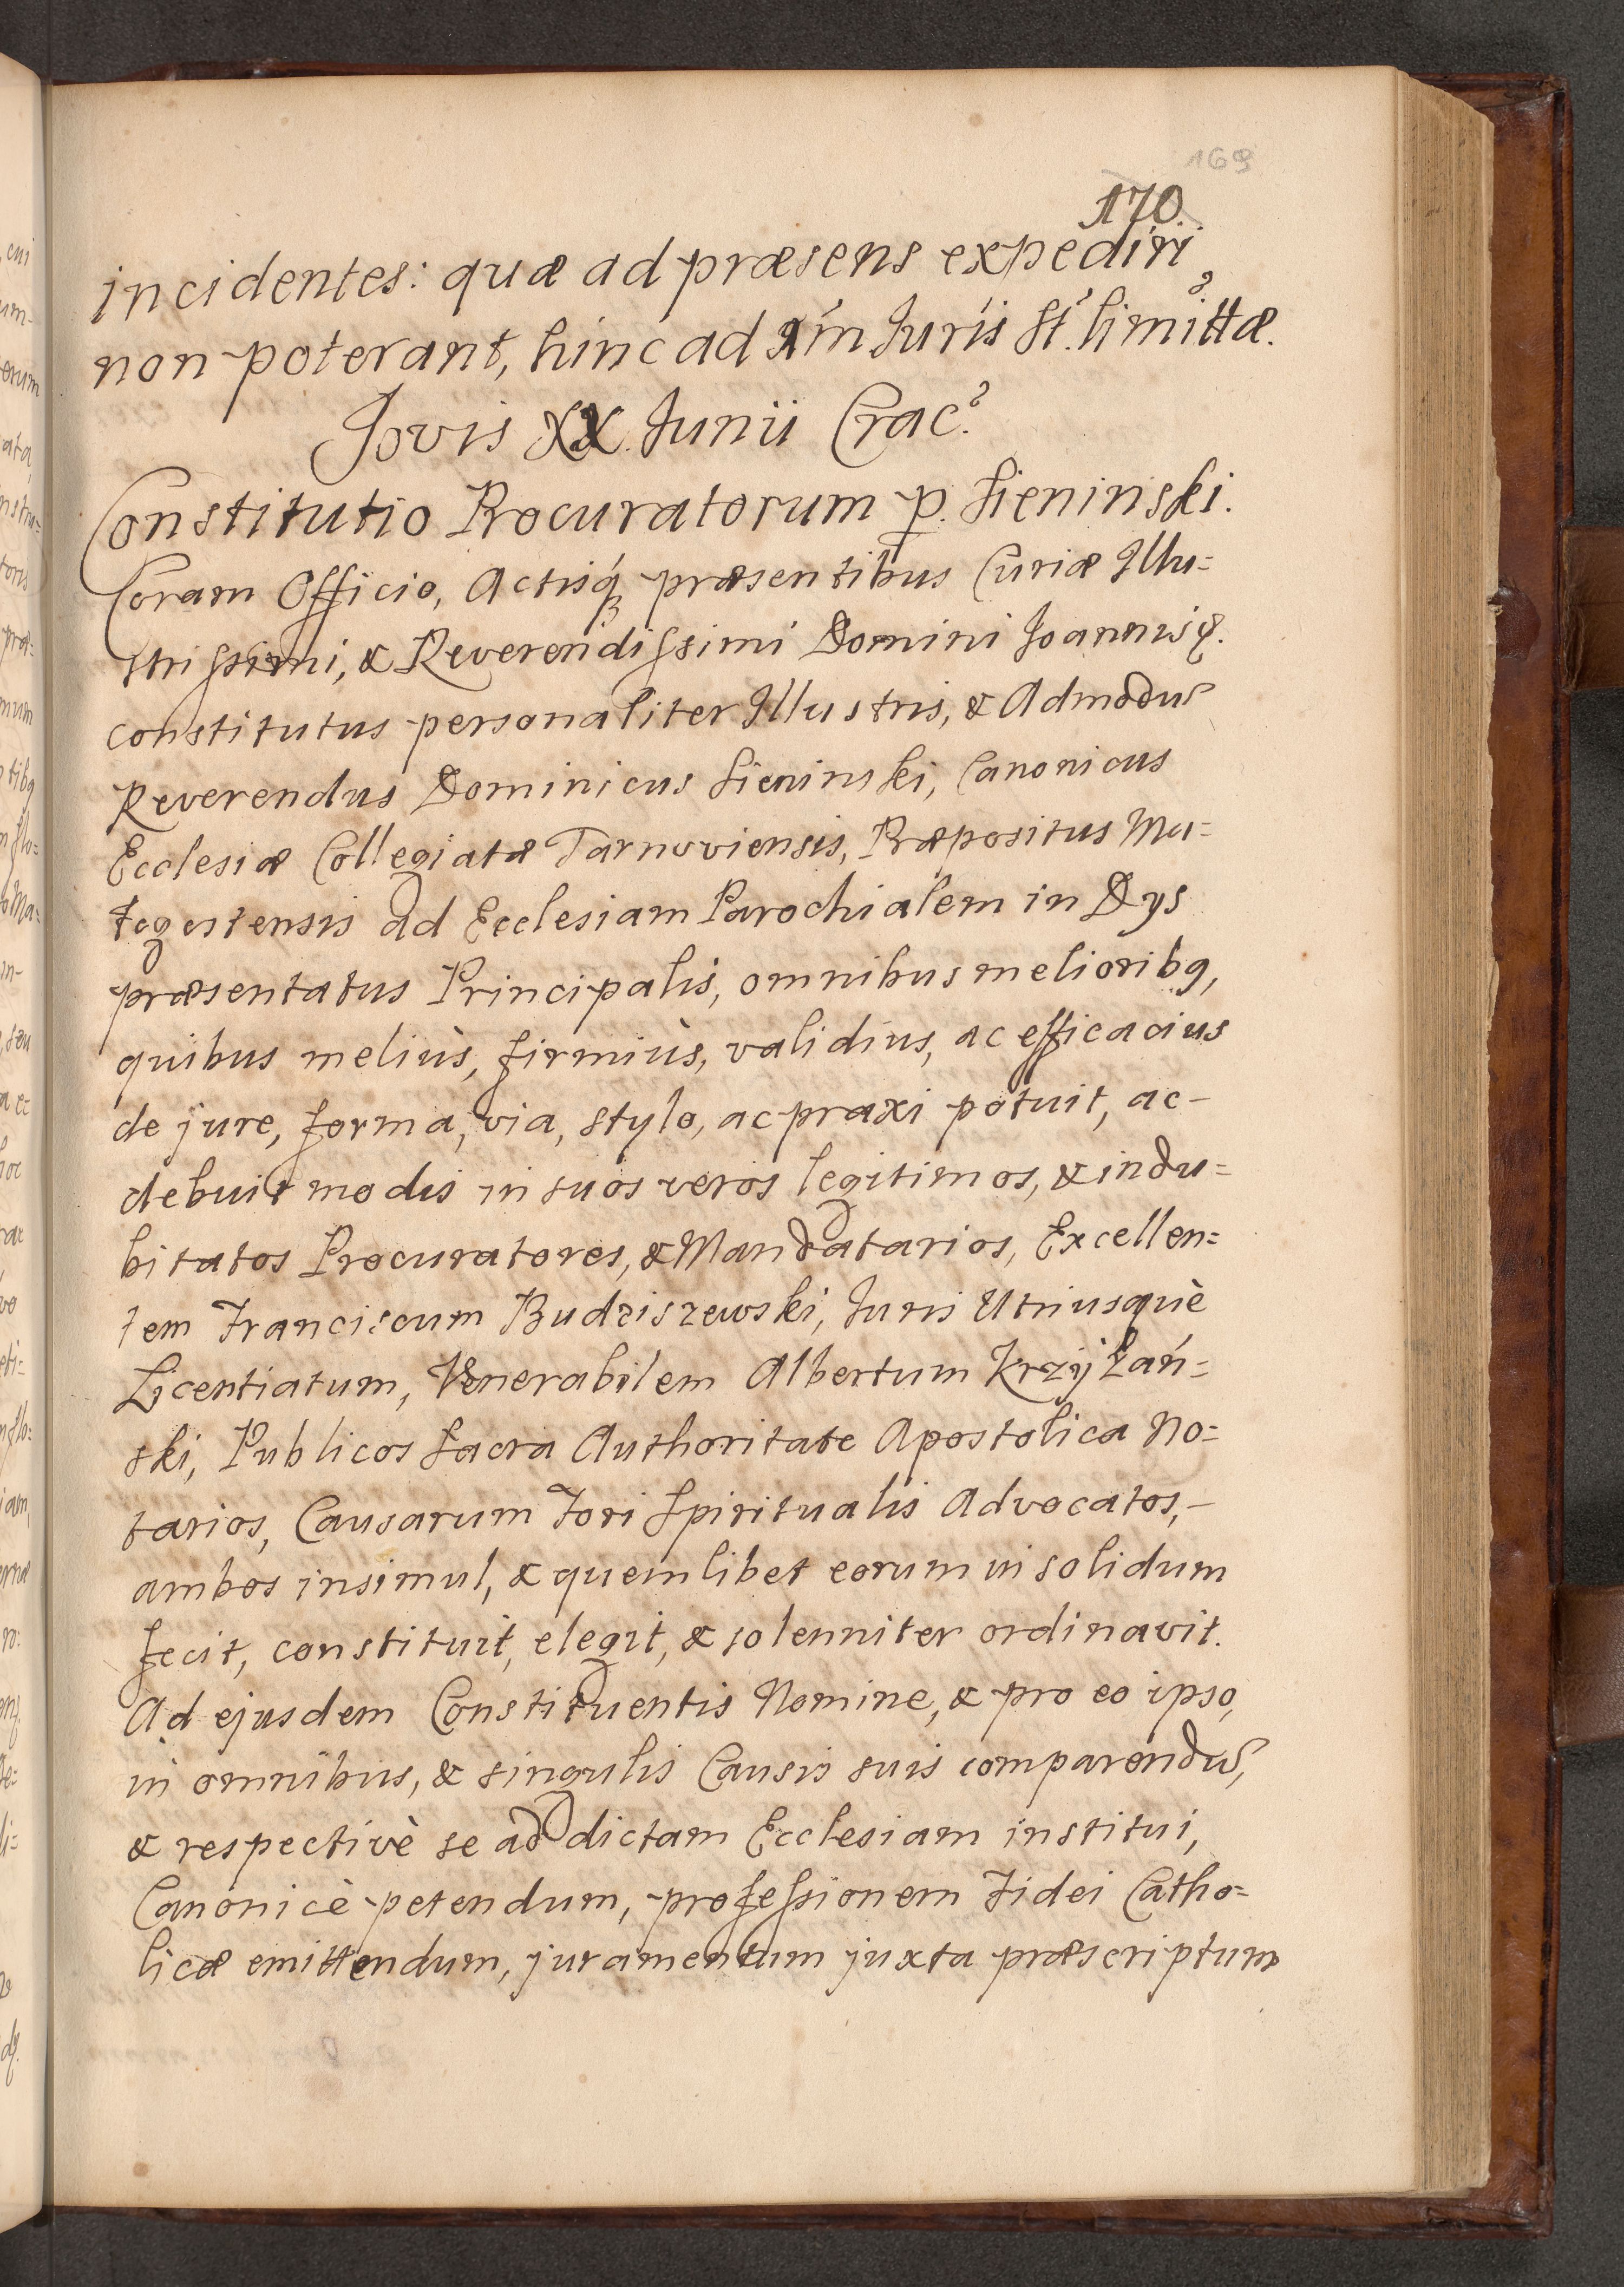 169
170.
incidentes: quæ ad præsens expediri
non poterant, hinc ad 1m Juris St. limittæ.
Jovis XX. Junii Crac.
Constitutio Procuratorum p. Sieninski.
Coram Officio, Actisq; præsentibus Curiæ Illu=
strissimi, & Reverendissimi Domini Joannis &.
constitutus personaliter Illustris, & Admodũ
Reverendus Dominicus Sieninski, Canonicus
Ecclesiæ Collegiatæ Tarnoviensis, Præpositus Ma=
togostensis ad Ecclesiam Parochialem in Dys
præsentatus Principalis, omnibus melioribq,
quibus meliùs, firmiùs, validius, ac efficacius
de jure, forma, via, stylo, ac praxi potuit, ac-
debuit modis in suos veros legitimos, & indu=
bitatos Procuratores, & Mandatarios, Excellen=
tem Franciscum Budziszewski, Juris Utriusquè
Licentiatum, Venerabilem Albertum Krzyżań=
ski, Publicos Sacra Authoritate Apostolica No=
tarios, Causarum Fori Spiritualis Advocatos,-
ambos insimul, & quemlibet eorum in solidum
fecit, constituit, elegit, & solenniter ordinavit.
Ad ejusdem Constituentis Nomine, & pro eo ipso,
in omnibus, & singulis Causis suis comparendũ,
& respectivè se ad dictam Ecclesiam institui,
Canonicè petendum, professionem Fidei Catho=
licæ emittendum, juramentum juxta præscriptum